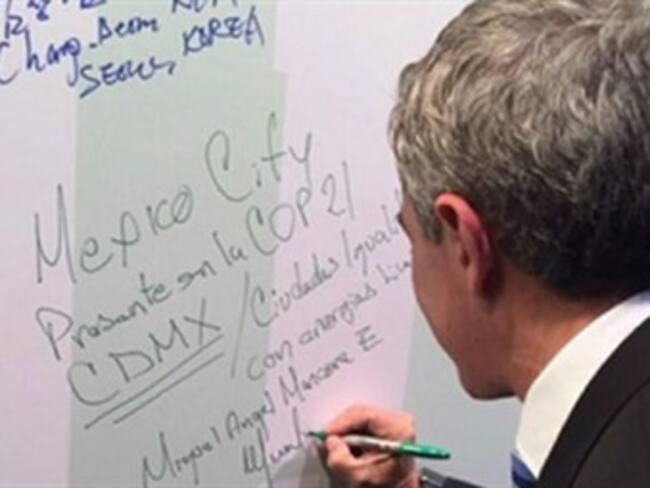 Chang-Beom
SEOUL, KOREA
Mexico City
Presente en la COP21
CDMX / Ciudades Iguali
con energías
Miguel Angel Mancera E